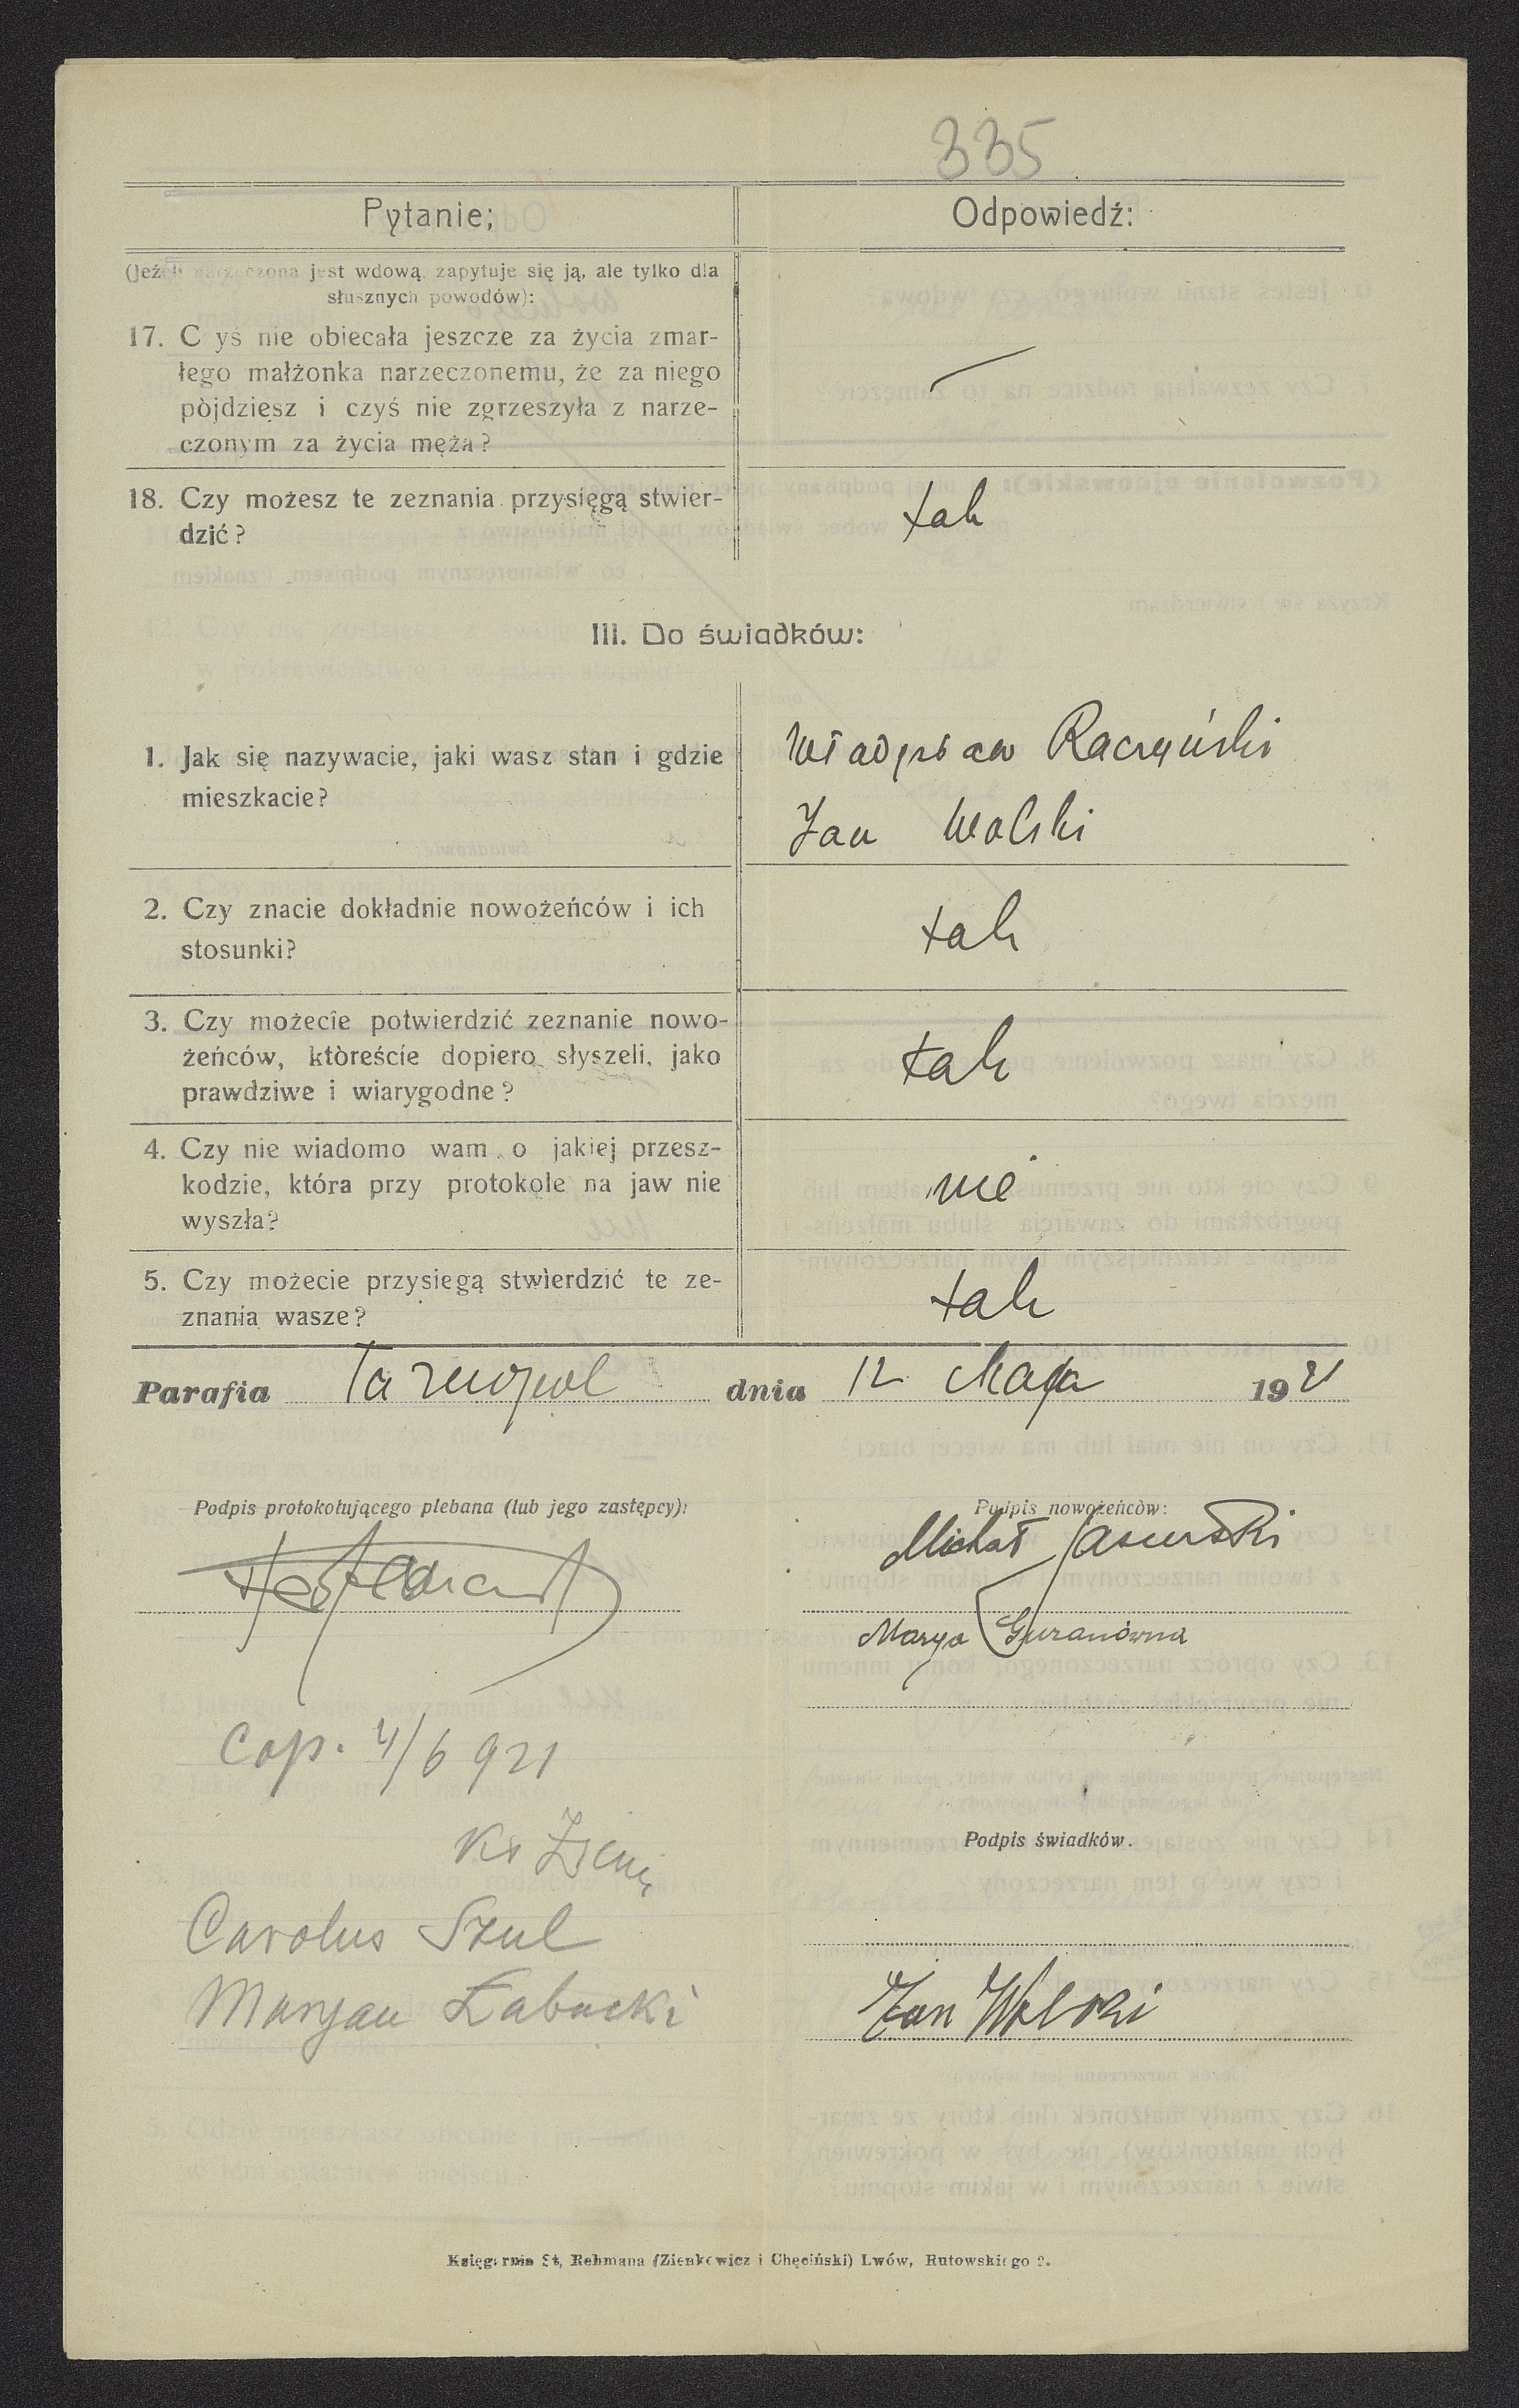 335
Pytanie;
Odpowiedź:
(Jeżeli narzeczona jest wdową, zapytuje się ją, ale tylko dla
słusznych powodów):
17. C yś nie obiecała jeszcze za życia zmar-
łego małżonka narzeczonemu, że za niego
pòjdziesz i czyś nie zgrzeszyła z narze-
czonym za życia męża?
—
18. Czy możesz te zeznania przysięgą stwier-
dzić?
tak
III. Do świadków:
1. Jak się nazywacie, jaki wasz stan i gdzie
mieszkacie?
Władysław Raczyński
Jan Wolski
2. Czy znacie dokładnie nowożeńców i ich
stosunki?
tak
3. Czy możecie potwierdzić zeznanie nowo-
żeńców, któreście dopiero słyszeli, jako
prawdziwe i wiarygodne?
tak
4. Czy nie wiadomo wam o jakiej przesz-
kodzie, która przy protokole na jaw nie
wyszła?
nie
5. Czy możecie przysiegą stwierdzić te ze-
znania wasze?
tak
Parafia Tarnopol dnia 12 Maja 1921
Podpis protokołującego plebana (lub jego zastępcy):
Podpis nowożeńców:
Michał
Marya Guranówna
Cop. 4/6 921
Ks
Carolus Szul
Maryan Łabucki
Podpis świadków.
Jan Wolski
Księgarnia St, Rehmana (Zienkowicz i Chęciński) Lwów, Rutowskiego 2.